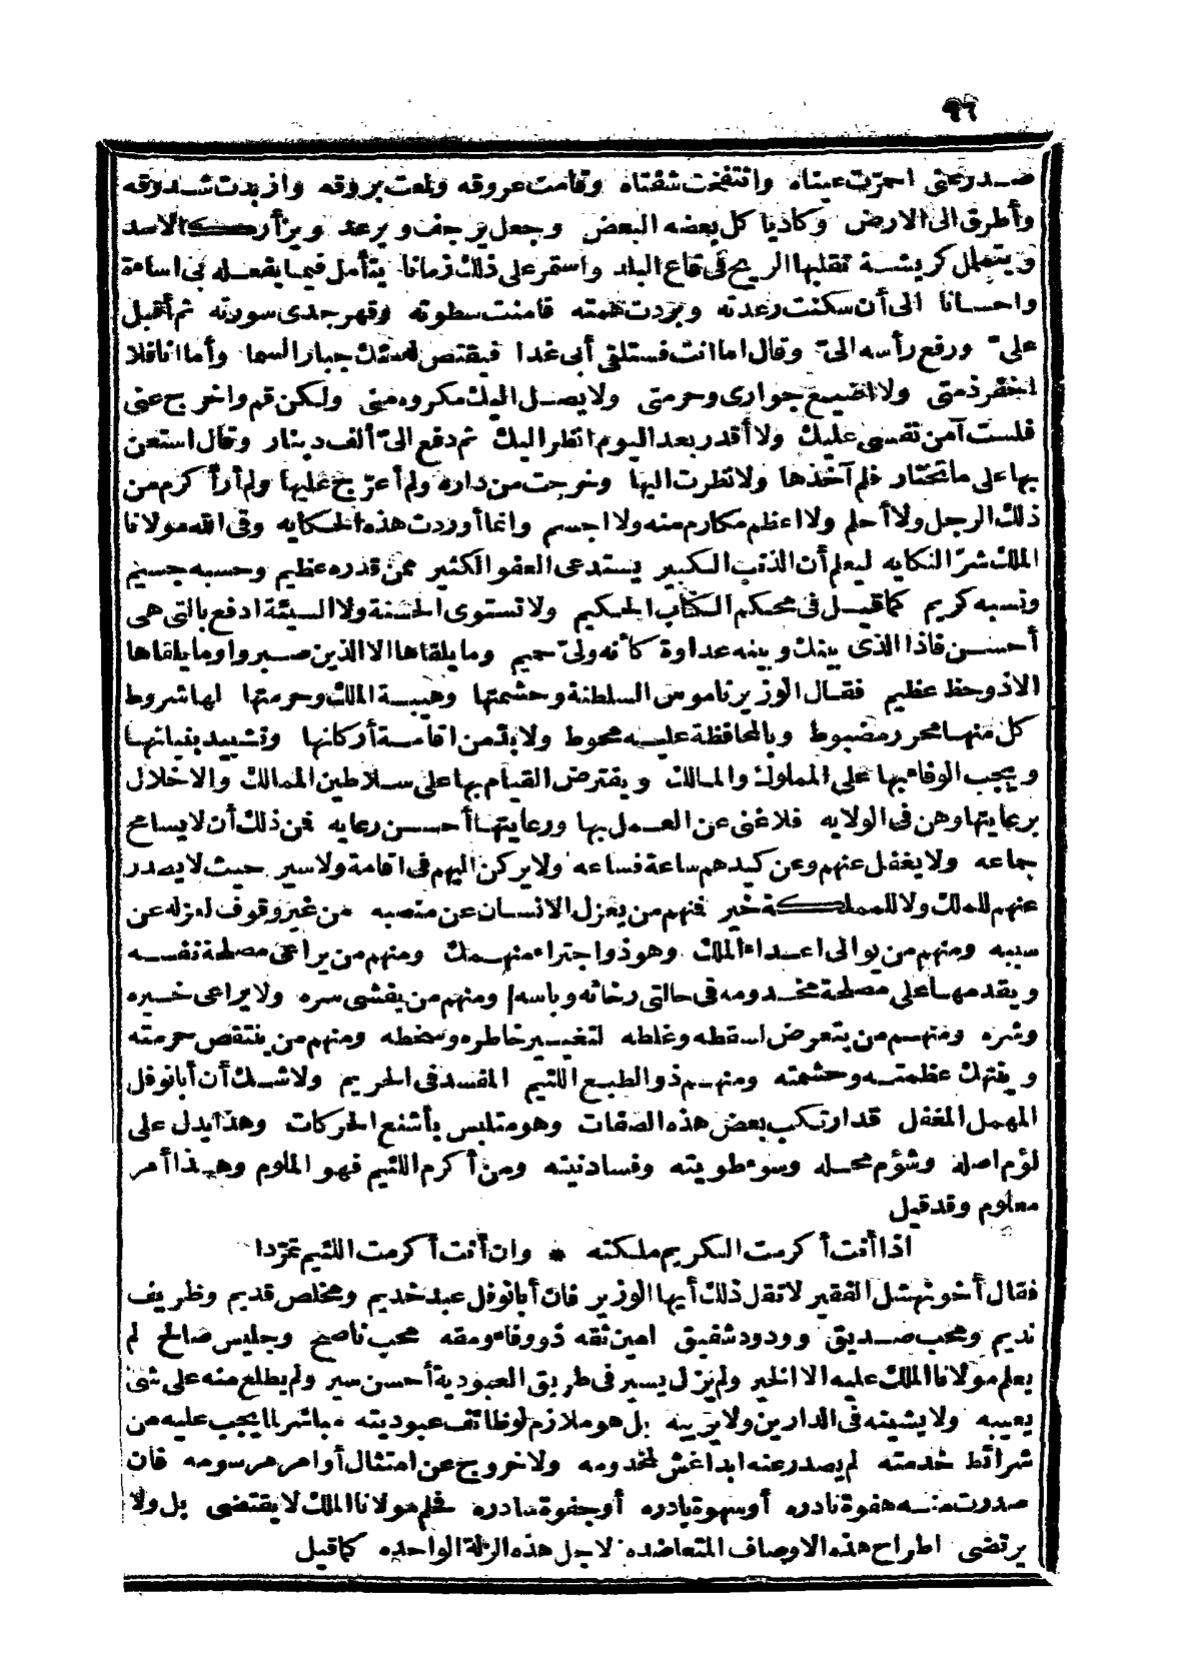 ٩٦
صدر عنى احمرت عيناه وانتفخت شفتاه وقامت عروقه ولمعت بروقه وازبدت شدوقه
وأطرق الى الارض وكاد يأكل بعضه البعض وجعل يرجف ويرعد ويزأر كالاسد
ويتململ كريشة تقلبها الريح فى قاع البلد واستمر على ذلك زمانا يتأمل فيما يفعله بى اساءة
واحسانا الى أن سكنت رعدته وبردت همته فامنت سطوته وقهر جدى سورته ثم أقبل
علىّ ورفع رأسه الىّ وقال اما انت فستلقى أبى غدا فيقتص لك منك جبار السما وأما انا فلا
اخفر ذمتى ولا اضيع جوارى وحرمتى ولا يصل اليك مكروه منى ولكن قم واخرج عنى
فلست آمن نفسى عليك ولا أقدر بعد اليوم انظر اليك ثم دفع الىّ ألف دينار وقال استعن
بها على ما تختار فلم آخذها ولا نظرت اليها وخرجت من داره ولم أعرّج عليها ولم أر أكرم من
ذلك الرجل ولا أحلم ولا اعظم مكارم منه ولا اجسم وانما أوردت هذه الحكايه وقى الله مولانا
الملك شرّ النكايه ليعلم أن الذنب الكبير يستدعى العفو الكثير ممن قدره عظيم وحسبه جسيم
ونسبه كريم كما قيل فى محكم الكتاب الحكيم ولا تستوى الحسنة ولا السيئة ادفع بالتى هى
أحسن فاذا الذى بينك وبينه عداوة كأنه ولىّ حميم وما يلقاها الا الذين صبروا وما يلقاها
الا ذو حظ عظيم فقال الوزير ناموس السلطنة وحشمتها وهيبة الملك وحرمتها لها شروط
كل منها محرر مضبوط وبالمحافظة عليه محوط ولا بدّ من اقامة أركانها وتشييد بنيانها
ويجب الوفاء بها على المملوك والمالك ويفترض القيام بها على سلاطين الممالك والاخلال
برعايتها وهن فى الولايه فلا غنى عن العمل بها ورعايتها أحسن رعايه فمن ذلك أن لا يسامح
جماعه ولا يغفل عنهم وعن كيدهم ساعة فساعه ولا يركن اليهم فى اقامة ولا سير حيث لا يصدر
عنهم للملك ولا للمملكة خير فمنهم من يعزل الانسان عن منصبه من غير وقوف لعزله عن
سببه ومنهم من يوالى اعداء الملك وهو ذو اجتراء منهمك ومنهم من يراعى مصلحة نفسه
ويقدمها على مصلحة مخدومه فى حالتى رخائه وباسه ومنهم من يفشى سره ولا يراعى خيره
وشره ومنهم من يتعرض اسقطه وغلطه لتغيير خاطره وسخطه ومنهم من ينتقص حرمته
وينتهك عظمته وحشمته ومنهم ذو الطبع اللئيم المفسد فى الحريم ولا شك أن أبا نوفل
المهمل المغفل قد ارتكب بعض هذه الصفات وهو متلبس بأشنع الحركات وهذا يدل على
لؤم اصله وشؤم محله وسوء طويته وفساد نيته ومن أكرم اللئيم فهو الملوم وهذا أمر
معلوم وقد قيل
اذا أنت أكرمت الكريم ملكته * وان أنت أكرمت اللئيم تمرّدا
فقال أخو نهشل الفقير لا تقل ذلك أيها الوزير فان أبا نوفل عبد خديم ومخلص قديم وظريف
نديم ومحب صديق وودود شفيق امين ثقه ذو وفاء ومقه محب ناصح وجليس صالح لم
يعلم مولانا الملك عليه الا الخير ولم يزل يسير فى طريق العبودية أحسن سير ولم يطلع منه على شئ
يعيبه ولا يشينه فى الدارين ولا يريبه بل هو ملازم لوظائف عبوديته مباشر لما يجب عليه من
شرائط خدمته لم يصدر عنه ابدا غش لمخدومه ولا خروج عن امتثال أوامر مرسومه فان
صدرت منه هفوة نادره أو سهوة بادره أو جفوة صادره فحلم مولانا الملك لا يقتضى بل ولا
يرتضى اطراح هذه الاوصاف المتعاضده لاجل هذه الزلة الواحده كما قيل